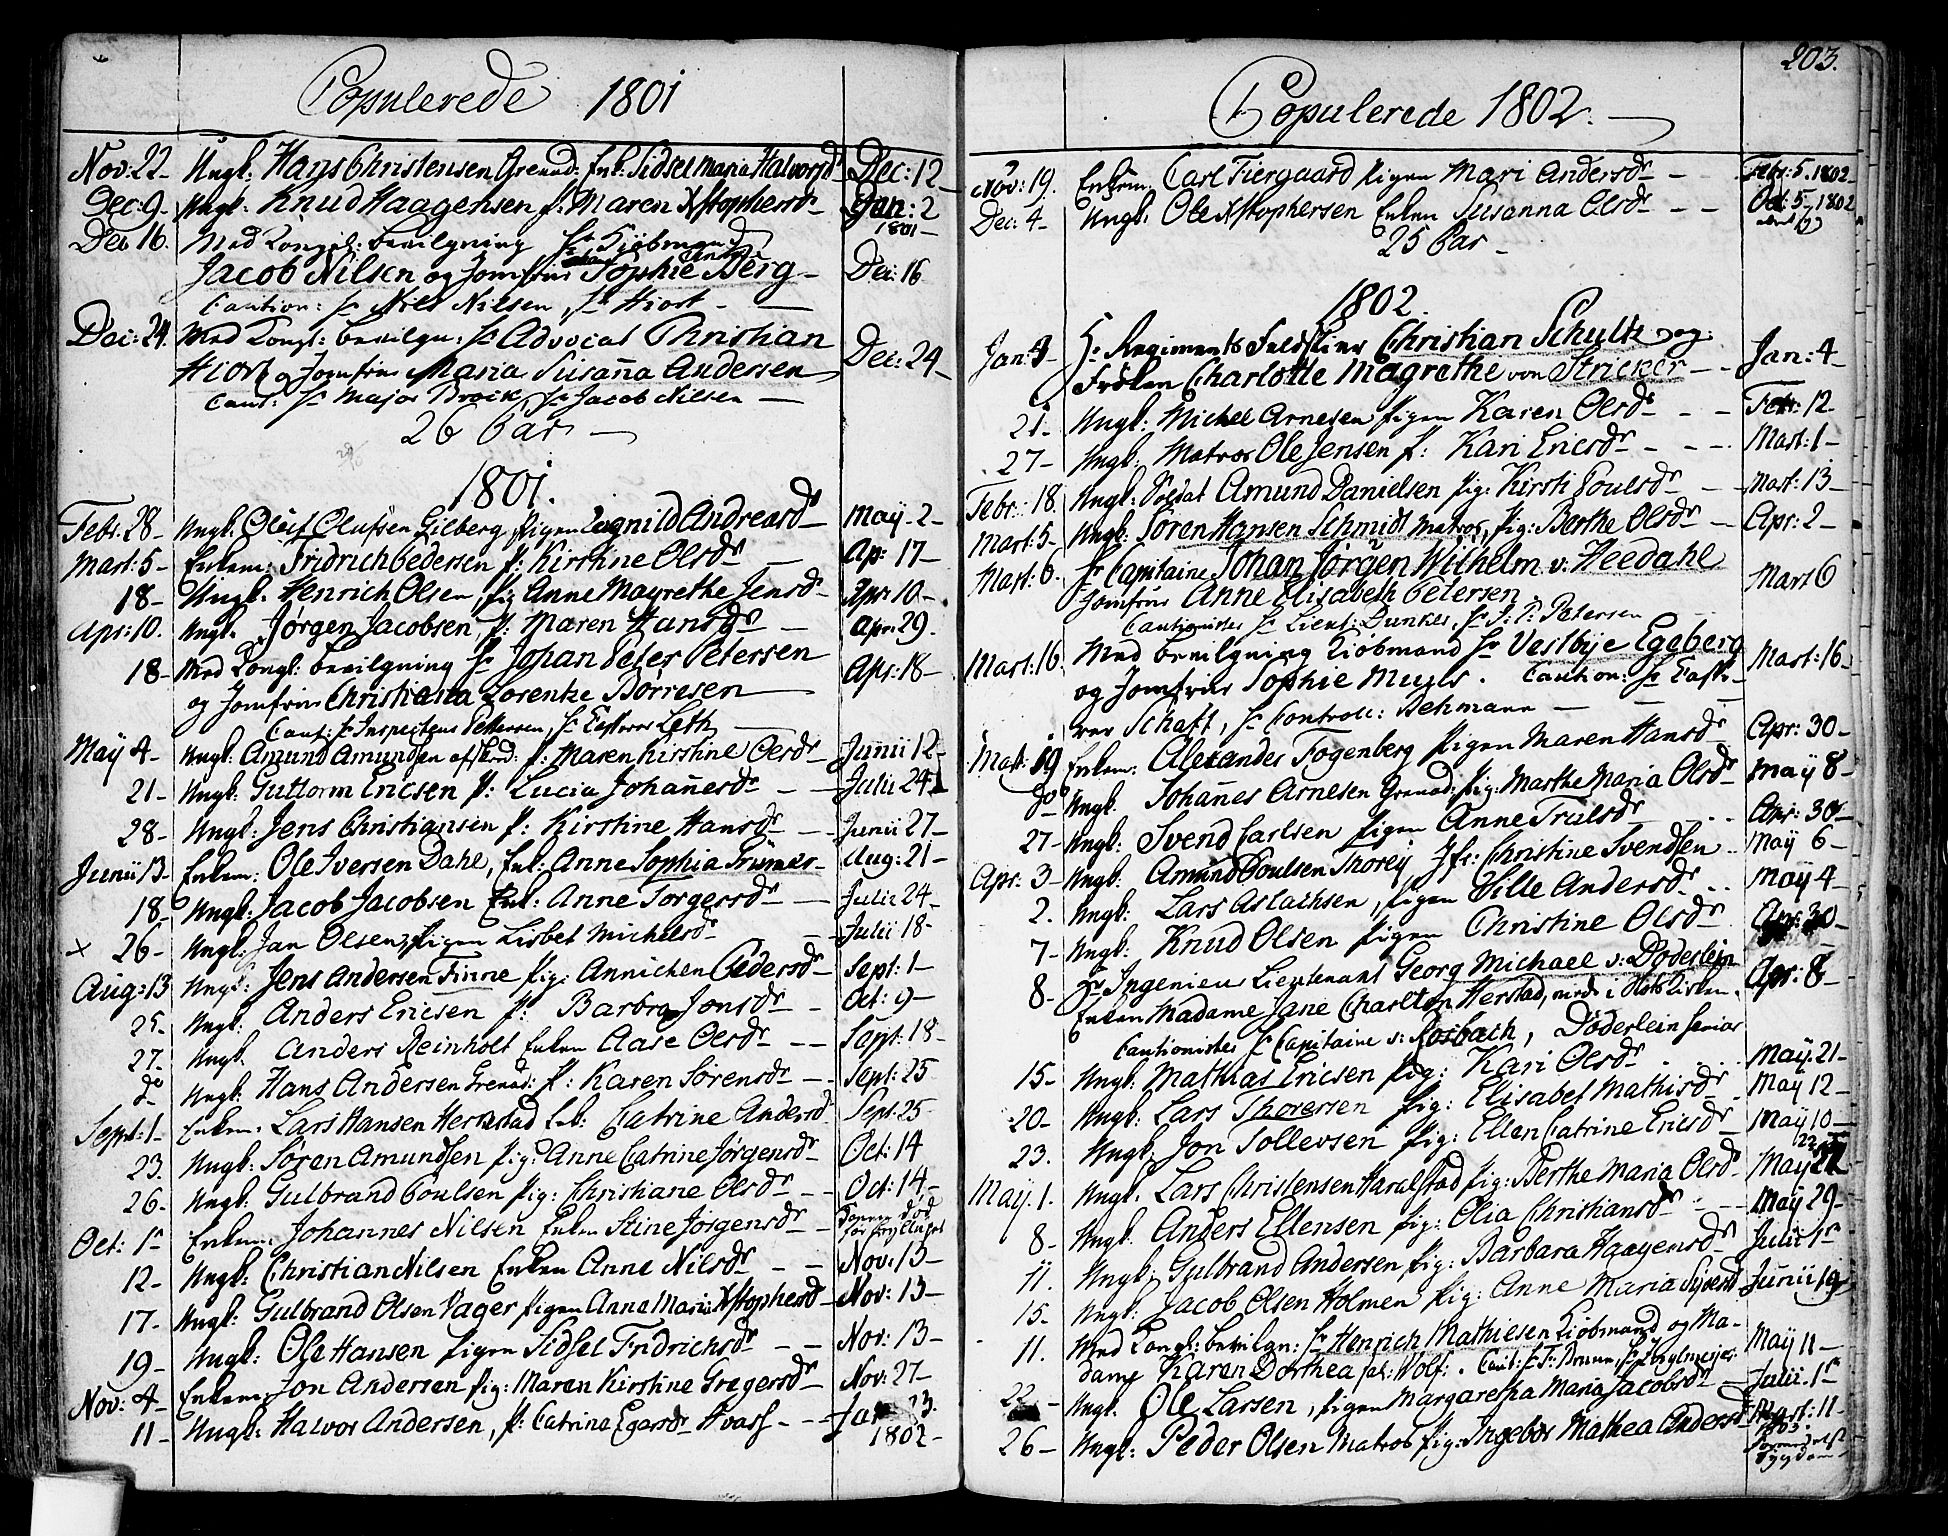 Copulerede 1801
Nov: 22 - Ungk: Hans Christensen Grenad: Enk: Sidsel Maria Halvorsdr Dec: 12 -
Dec: 9 - Ungk. Knud Haagensen P: Maren Xstophersdr - Jan: 2
1801 -
Dec 16. Med Kongel: bevilgning Hr Kiöbmand
Jacob Nilsen og Jomfrue Sophie Berg - Dec: 16
Caution: Hr Niels Nilsen, Hr Hiort -
Dec: 24. Med Kongl: bevilgn: Hr Advocat Christhian
Hiort og Jomfrue Maria Susan̄a Andersen Dec: 24 -
Caut: Hr Major Brock, Hr Jacob Nilsen -
26 Par -
1801.
Febr: 28 - Ungk: Oluf Olufsen Gilberg, Pigen Ragnild Andreasdr May - 2 -
Mart: 5 - Enkem: Fridrich Pedersen P: Kirstine Olsdr - Ap: 17 -
18 - Ungk: Henrich Olsen, Pig Anne Magrethe Jensdr Apr: 10 -
Apr: 10. Ungk. Jørgen Jacobsen, P: Maren Hansdr - Apr: 29.
18 - Med Kongl: bevilgning Hr Johan Peter Petersen Apr: 18 -
og Jomfrue Christiana Lorentze Börresen
Caut: Hr Inspecteur Petersen, Hr Factor Leth
May 4 - Ungk: Amund Amundsen afskeed: P: Maren Kirstine Olsdr Junii 12 -
21 - Ungk: Guttorm Ericsen P: Lucia Johan̄esdr - - Julii 24
28 - Ungk: Jens Christiansen P: Kirstine Hansdr - Junii 27 -
Junii 13 - Enkem: Ole Iversen Dahl, Enk: Anne Sophia Trümer - Aug: 21 -
18 - Ungk: Jacob Jacobsen Enk: Anne Torgersdr - Julii 24 -
x 26 - Ungk: Jan Olsen, Pigen Lisbet Michelsdr - Julii 18 -
Aug: 13 Ungk: Jens Andersen Finne Pig: Annichen Pedersdr - Sept: 1 -
25. Ungk: Anders Ericsen P: Barbra Jonsdr - - Oct: 9 -
27. Ungk. Anders Reinholt Enken Aase Olsdr - - Sept: 18 -
do Ungk: Hans Andersen Grenad: P: Karen Sörensdr - Sept: 25
Sept: 1 - Enkem: Lars Hansen Herrestad Enk: Catrine Andersdr Sept: 25 -
23. Ungk: Søren Amundsen Pig: Anne Catrine Jørgensdr - Oct: 14
26. Ungk: Gulbrand Poulsen Pig: Christiane Olsdr - - Oct: 14 -
Oct: 1 Enkem: Johannes Nilsen Enken Stine Jørgensdr -
12 - Ungk: Christian Nilsen Enken Anne Nilsdr - - Nov: 13 -
17 - Ungk: Gulbrand Olsen Vager Pigen Anna Maria Xstophersdr - Nov: 13 -
19 - Ungk: Ole Hansen Pigen Sidsel Fridrichsdr - - Nov: 13 -
Nov: 4 - Enkem: Jon Andersen Pig: Maren Kirstine Gregersdr - Nov: 27 -
11 - Ungk: Halvor Andersen, P: Catrine Egersdr - - Jan 23.
1802 -
203.
Copulerede 1802. -
Nov: 19. Enkem: Carl Fiergaard Pigen Mari Andersdr - Febr: 5. 1802 -
Dec: 4 - Ungk: Ole Xstophersen Enken Susanna Olsdr - - Oct: 5 - 1802
25 Par -
1802.
Jan: 4 - Hr Regiments Feldskier Christian Schultz og
Frøken Charlotte Magrethe von Stricker - - Jan: 4 -
21 - Ungk: Michel Arnesen Pigen Karen Olsdr - - Febr: 12 -
27 - Ungk: Matros Ole Jensen P: Kari Ericsdr - - - Mart: 1 -
Febr: 18. Ungk: Soldat Amund Danielsen Pig: Kirsti Poulsdr - Mart: 13 -
Mart: 5 - Ungk: Sören Hansen Schmidt Matros, Pig: Berthe Olsdr - Apr: 2 -
Mart: 6. Hr Capitaine Johan Jørgen Wilhelm v: Heedahl
Jomfrue Anne Elisabeth Petersen. Mart 6
Cautionister Hr Lieut: Dunker, Hr S: P: Petersen
Mart: 16. Med bevilgning Kiöbmand Hr Vestbye Egeberg
og Jomfrue Sophie Muuls. Caution: Hr Factr - Mart: 16 -
Schaft, Hr Controll: Rehmann -
Mart: 19 Enkem: Alexander Fogenberg Pigen Maren Hansdr Apr: 30 -
do Ungk. Johan̄es Arnesen Grenad: Pig: Marthe Maria Olsdr May 8 -
27 - Ungk: Svend Carlsen Pigen Anne Trulsdr Apr: 30 -
Apr: 3 - Ungk: Amund Poulsen Thorey Jfr: Christine Svendsen - May 6 -
2. Ungk: Lars Aslachsen, Pigen Sille Andersdr - May 4 -
7 - Ungk: Knud Olsen Pigen Christine Olsdr Apr: 30 -
8 - Hr Ingenieur Lieutenant Georg Michael v: Døderlein Apr: 8 -
Enken Madame Jane Charlton Herstad, viede i Slots Kirken.
Cautionister Hr Capitaine v: Rosbach, Döderlein Senior
15 - Ungk: Mathias Ericsen Pig: Kari Olsdr May: 21 -
20 - Ungk: Lars Thoresen Pig: Elisabet Mathisdr May 12 -
23. Ungk: Jon Tollevsen Pig: Ellen Catrine Ericsdr - May 10 -
May: 1. Ungk. Lars Christensen Haralstad Pig: Berthe Maria Olsdr - May 22
8 - Ungk. Anders Ellensen Pig: Olia Christiansdr - - May 29 -
11. Ungk: Gulbrand Andersen Pig: Barbara Haagensdr - Julii 1
15. Ungk: Jacob Olsen Holmen Pig: Anne Maria Sivertsdr Junii 19
11. Med Kongl: bevilgn: Hr Henrich Mathiesen Kiöbmand og Ma-
dame Karen Dorthea sal: Wolf. Caut: Hr T: Bruun, May 11 -
22 - Ungk. Ole Larsen, Pigen Margaretha Maria Jacobsdr - Julii: 1
26 - Ungk: Peder Olsen Matros Pig: Ingebor Mathea Andersdr Mart: 11 -
1803.